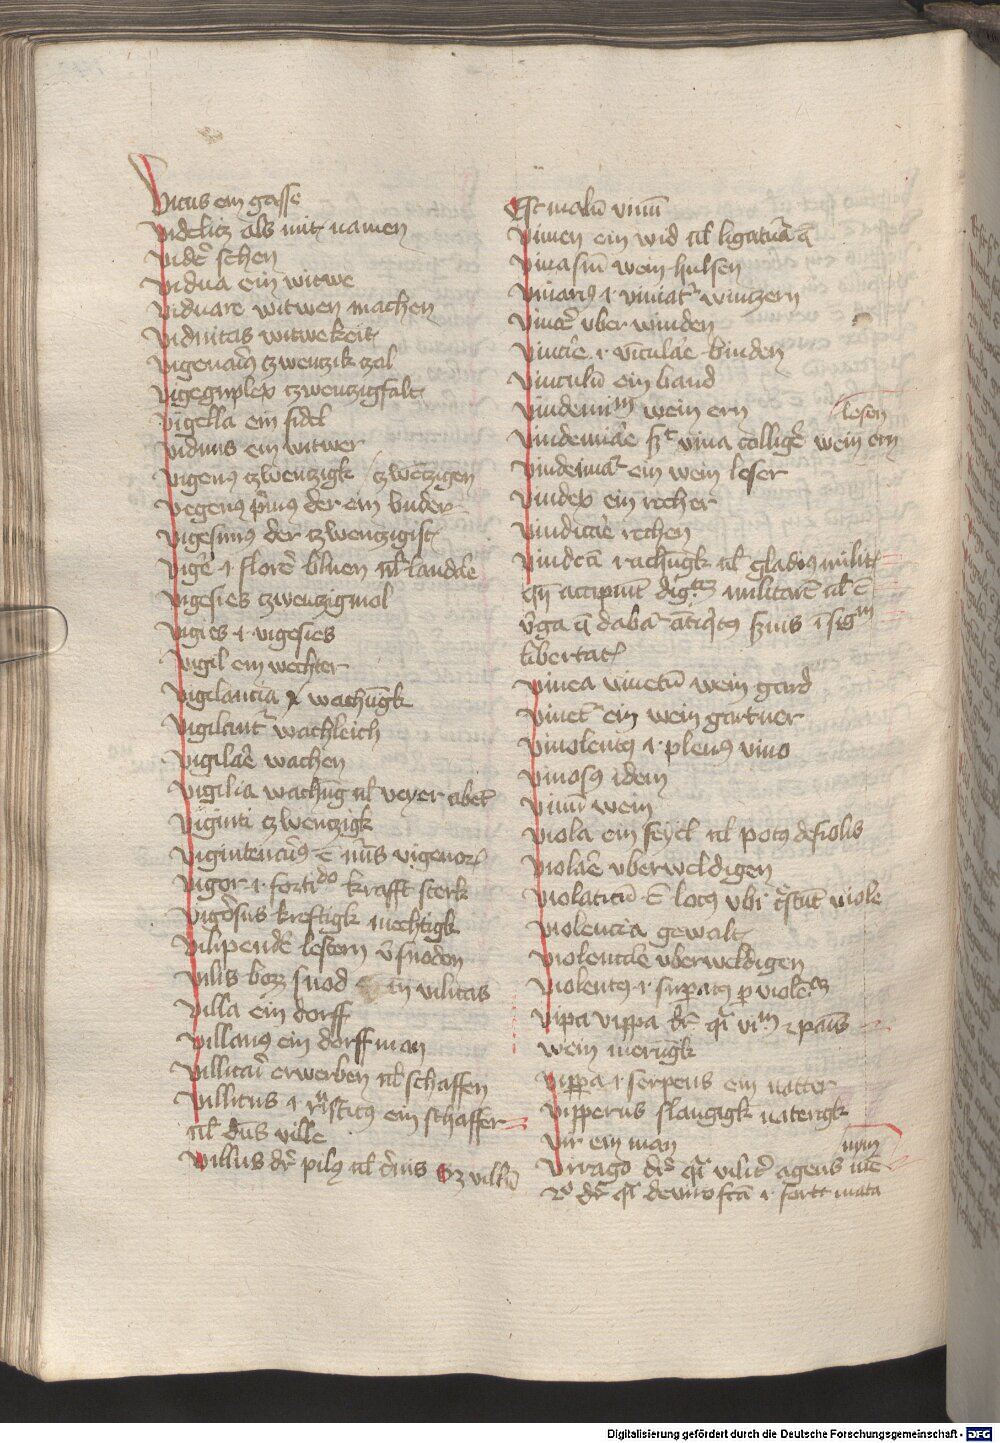 Vicus ein gasse
videlicz als mit namen
videre sehen
vidua ein witwe
viduare witwen machen
viduitas witwekeit
vigenarius czwenczik czal
vigecuplex czwenczigfalt
vigella ein fidel
viduus ein witwer
vigenus czwenczigk / czwenczigen
vegenus primus der ein vnder
vigesimus der czwenczigist
vigere .i. florere bluen vel laudare
vigesies czwenczigmol
vigies .i. vigesies
vigil ein wechter
vigilancia wachungk
vigilanter wachleich
vigilare wachen
vigilia wachung vel veyer abent
viginti czwenczigk
vigintenarius est numerus vigenorum
vigor .i. fortitudo krafft sterk
vigorosus kreftigk mechtigk
vilipendere lestern vorsnoden
vilis bose snod in vilitas
villa ein dorff
villanus ein dorffman
villicari erwerben vel schaffen
villicus .i. rusticus ein schaffer
vel dominus ville
villus dicitur pilus vel
Est malum vinum
vimen ein wid vel ligatura
vinasium wein hulsen
vinarius .i. viniator winczern
vincere vber winden
vincire .i. vinculare binden
vinculum ein band
vindemium wein ern
lesen
vindemiare sunt vina colligere wein ern
vindemiator ein wein leser
vindex ein recher
vindicare rechen
vindicta rachungk vel gladius milit
quem accipiunt militarem vel est
virga
libertatis
vinea vinetum wein gard
vinetor ein wein gartner
vinolentus .i. plenus vino
vinosus idem
vinum wein
viola ein feyel vel potus de fiolis
violare vberweldigen
violarium est locus vbi crescunt viole
violencia gewalt
violentare vberweldigen
violentus .i. per violenciam
vipa vippa dicitur quasi vinum et panis
wein merungk
vippera .i. serpens ein natter
vipperus slangigk naterigk
vir ein man
virago dicitur quasi viliter agens